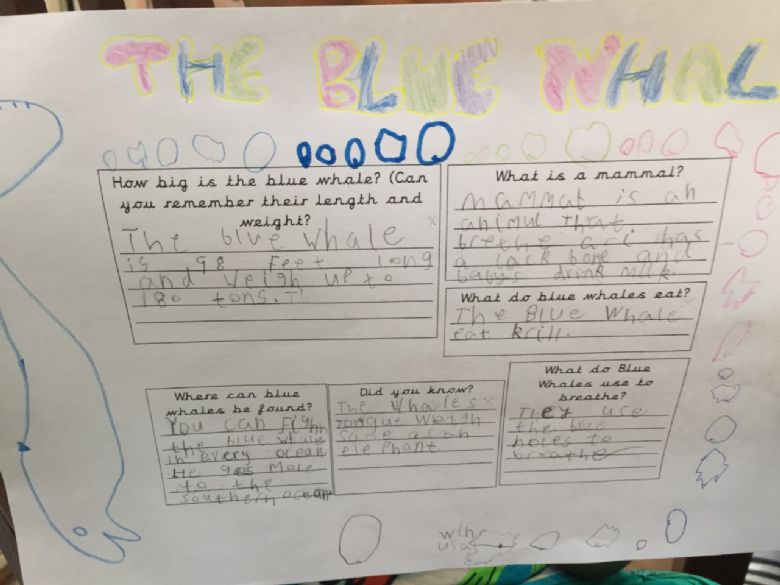 THE BLUE WHAL
How big is the blue whale? (Can
you remember their length and
weight?
The blue whale
is 98 feet long
and weigh up to
180 tons. Ti
What is a mammal?
mammal is an
animul that
breathe air has
a back bone and
baby's drink milk.
What do blue whales eat?
The Blue Whale
eat krill.
Where can blue
whales be found?
You can
the blue whale
in every ocean
He goes more
to the
southern ocean
Did you know?
The whales
tongue weigh
same as an
elephant.
What do Blue
Whales use to
breathe?
They use
the
holes to
breathe